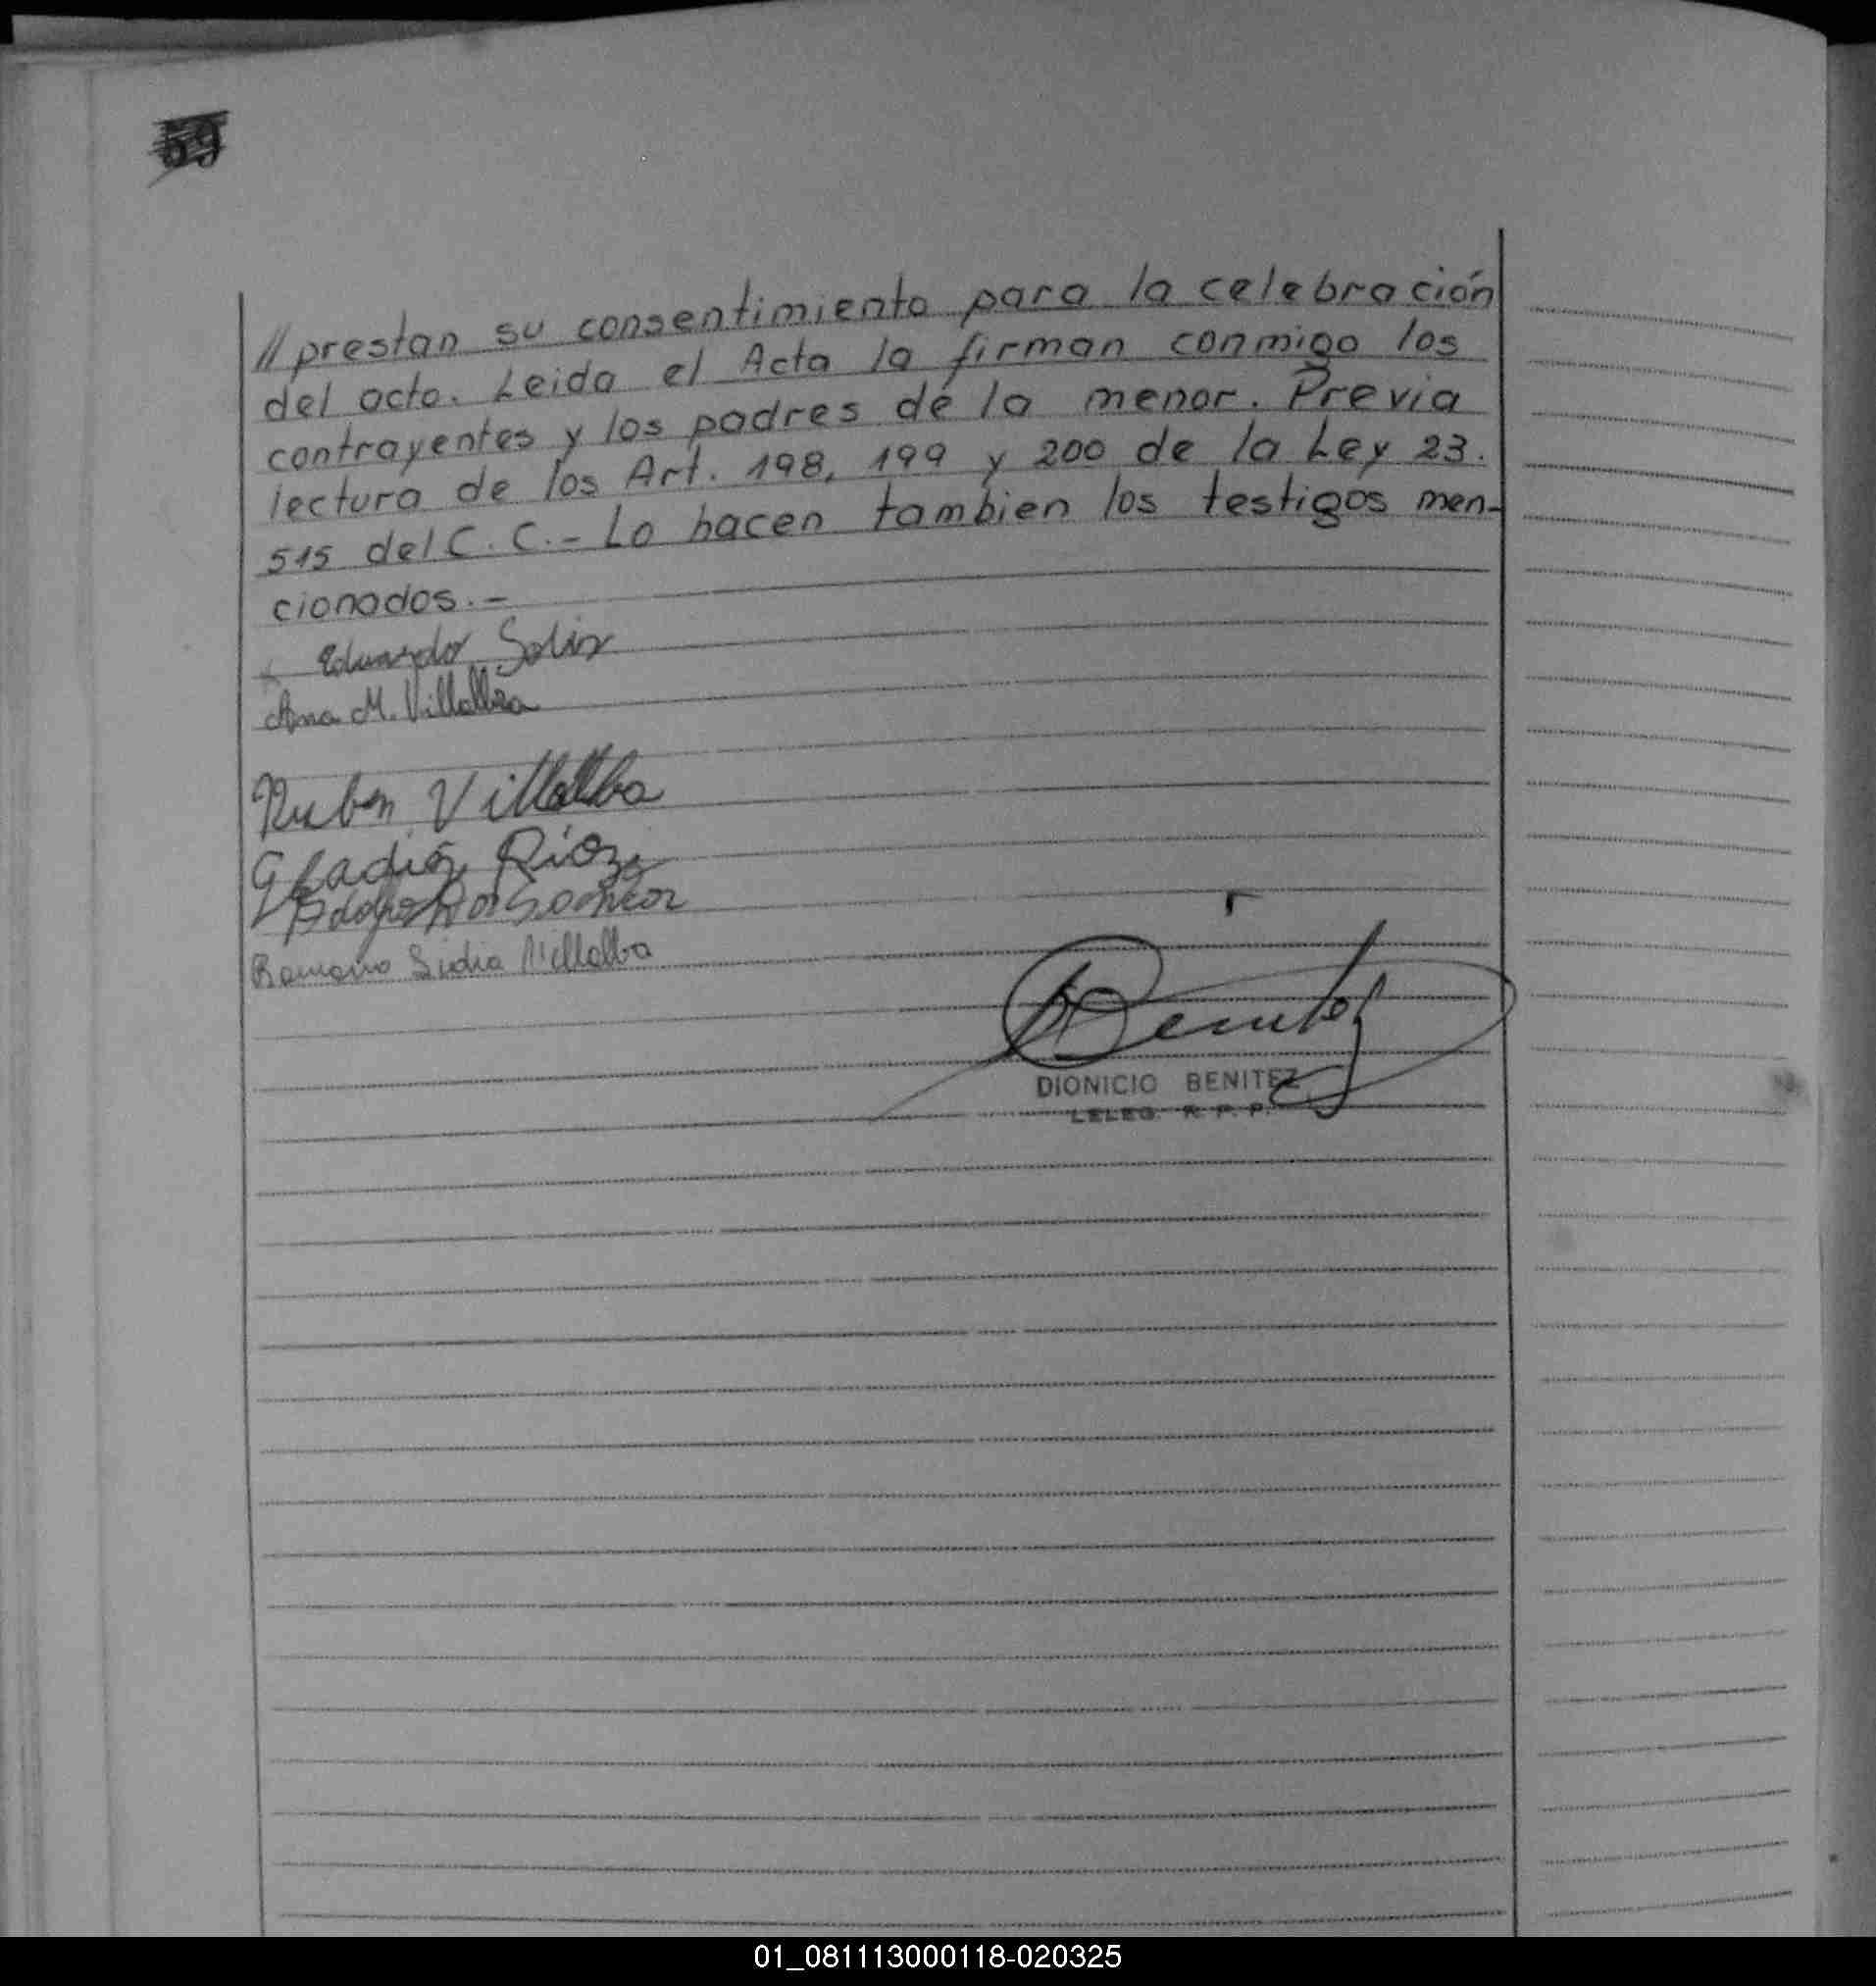 59
// prestan su consentimiento para la celebración
del acto. Leida el Acta la firman conmigo los
contrayentes y los padres de la menor. Previa
lectura de los Art. 198, 199 y 200 de la Ley 23.
515 del C. C. - Lo hacen tambien los testigos men-
cionados. -
x Eduardo Solis
Ana M. Villalba
Ruben Villalba
Gladis
Villalba
Benitez
DIONICIO BENITEZ
R. P. P.
01_081113000118-020325